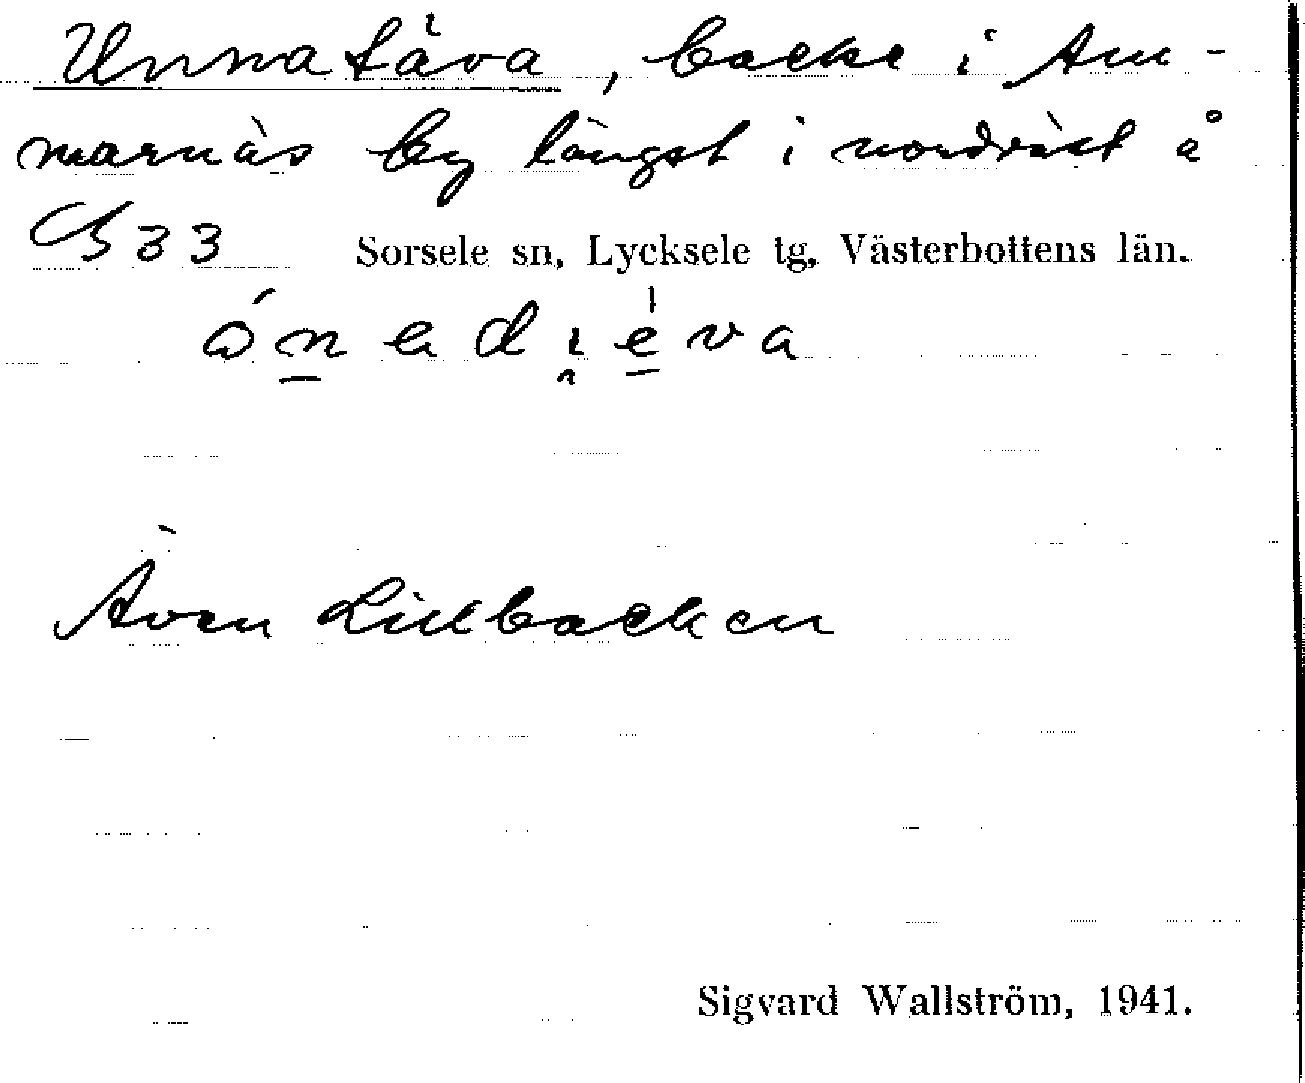 Unnatäva, backe i Am-
marnäs by längst i nordväst å
B 33 Sorsele sn, Lycksele tg, Västerbottens län.
ónadi̯éva
Även Lillbacken
Sigvard Wallström, 1941.